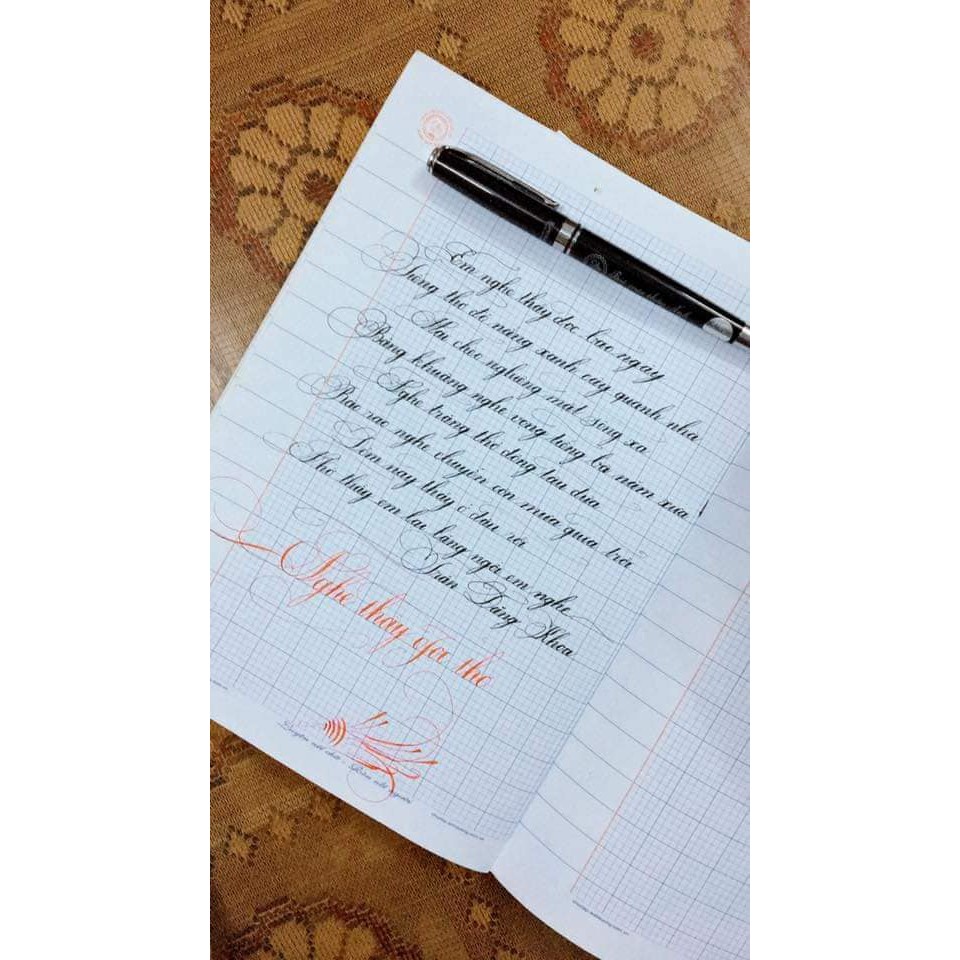 Em nghe thầy đọc bao ngày
Tiếng thơ đỏ nắng xanh cây quanh nhà
Mái chèo nghiêng mặt sông xa
Bâng khuâng nghe vọng tiếng bà năm xưa
Nghe trăng thở động tàu dừa
Rào rào nghe chuyển cơn mưa giữa trời
Đêm nay thầy ở đâu rồi
Nhớ thầy em lại lặng ngồi em nghe
Trần Đăng Khoa
Nghe thầy đọc thơ
Luyện nét chữ - Rèn nết người